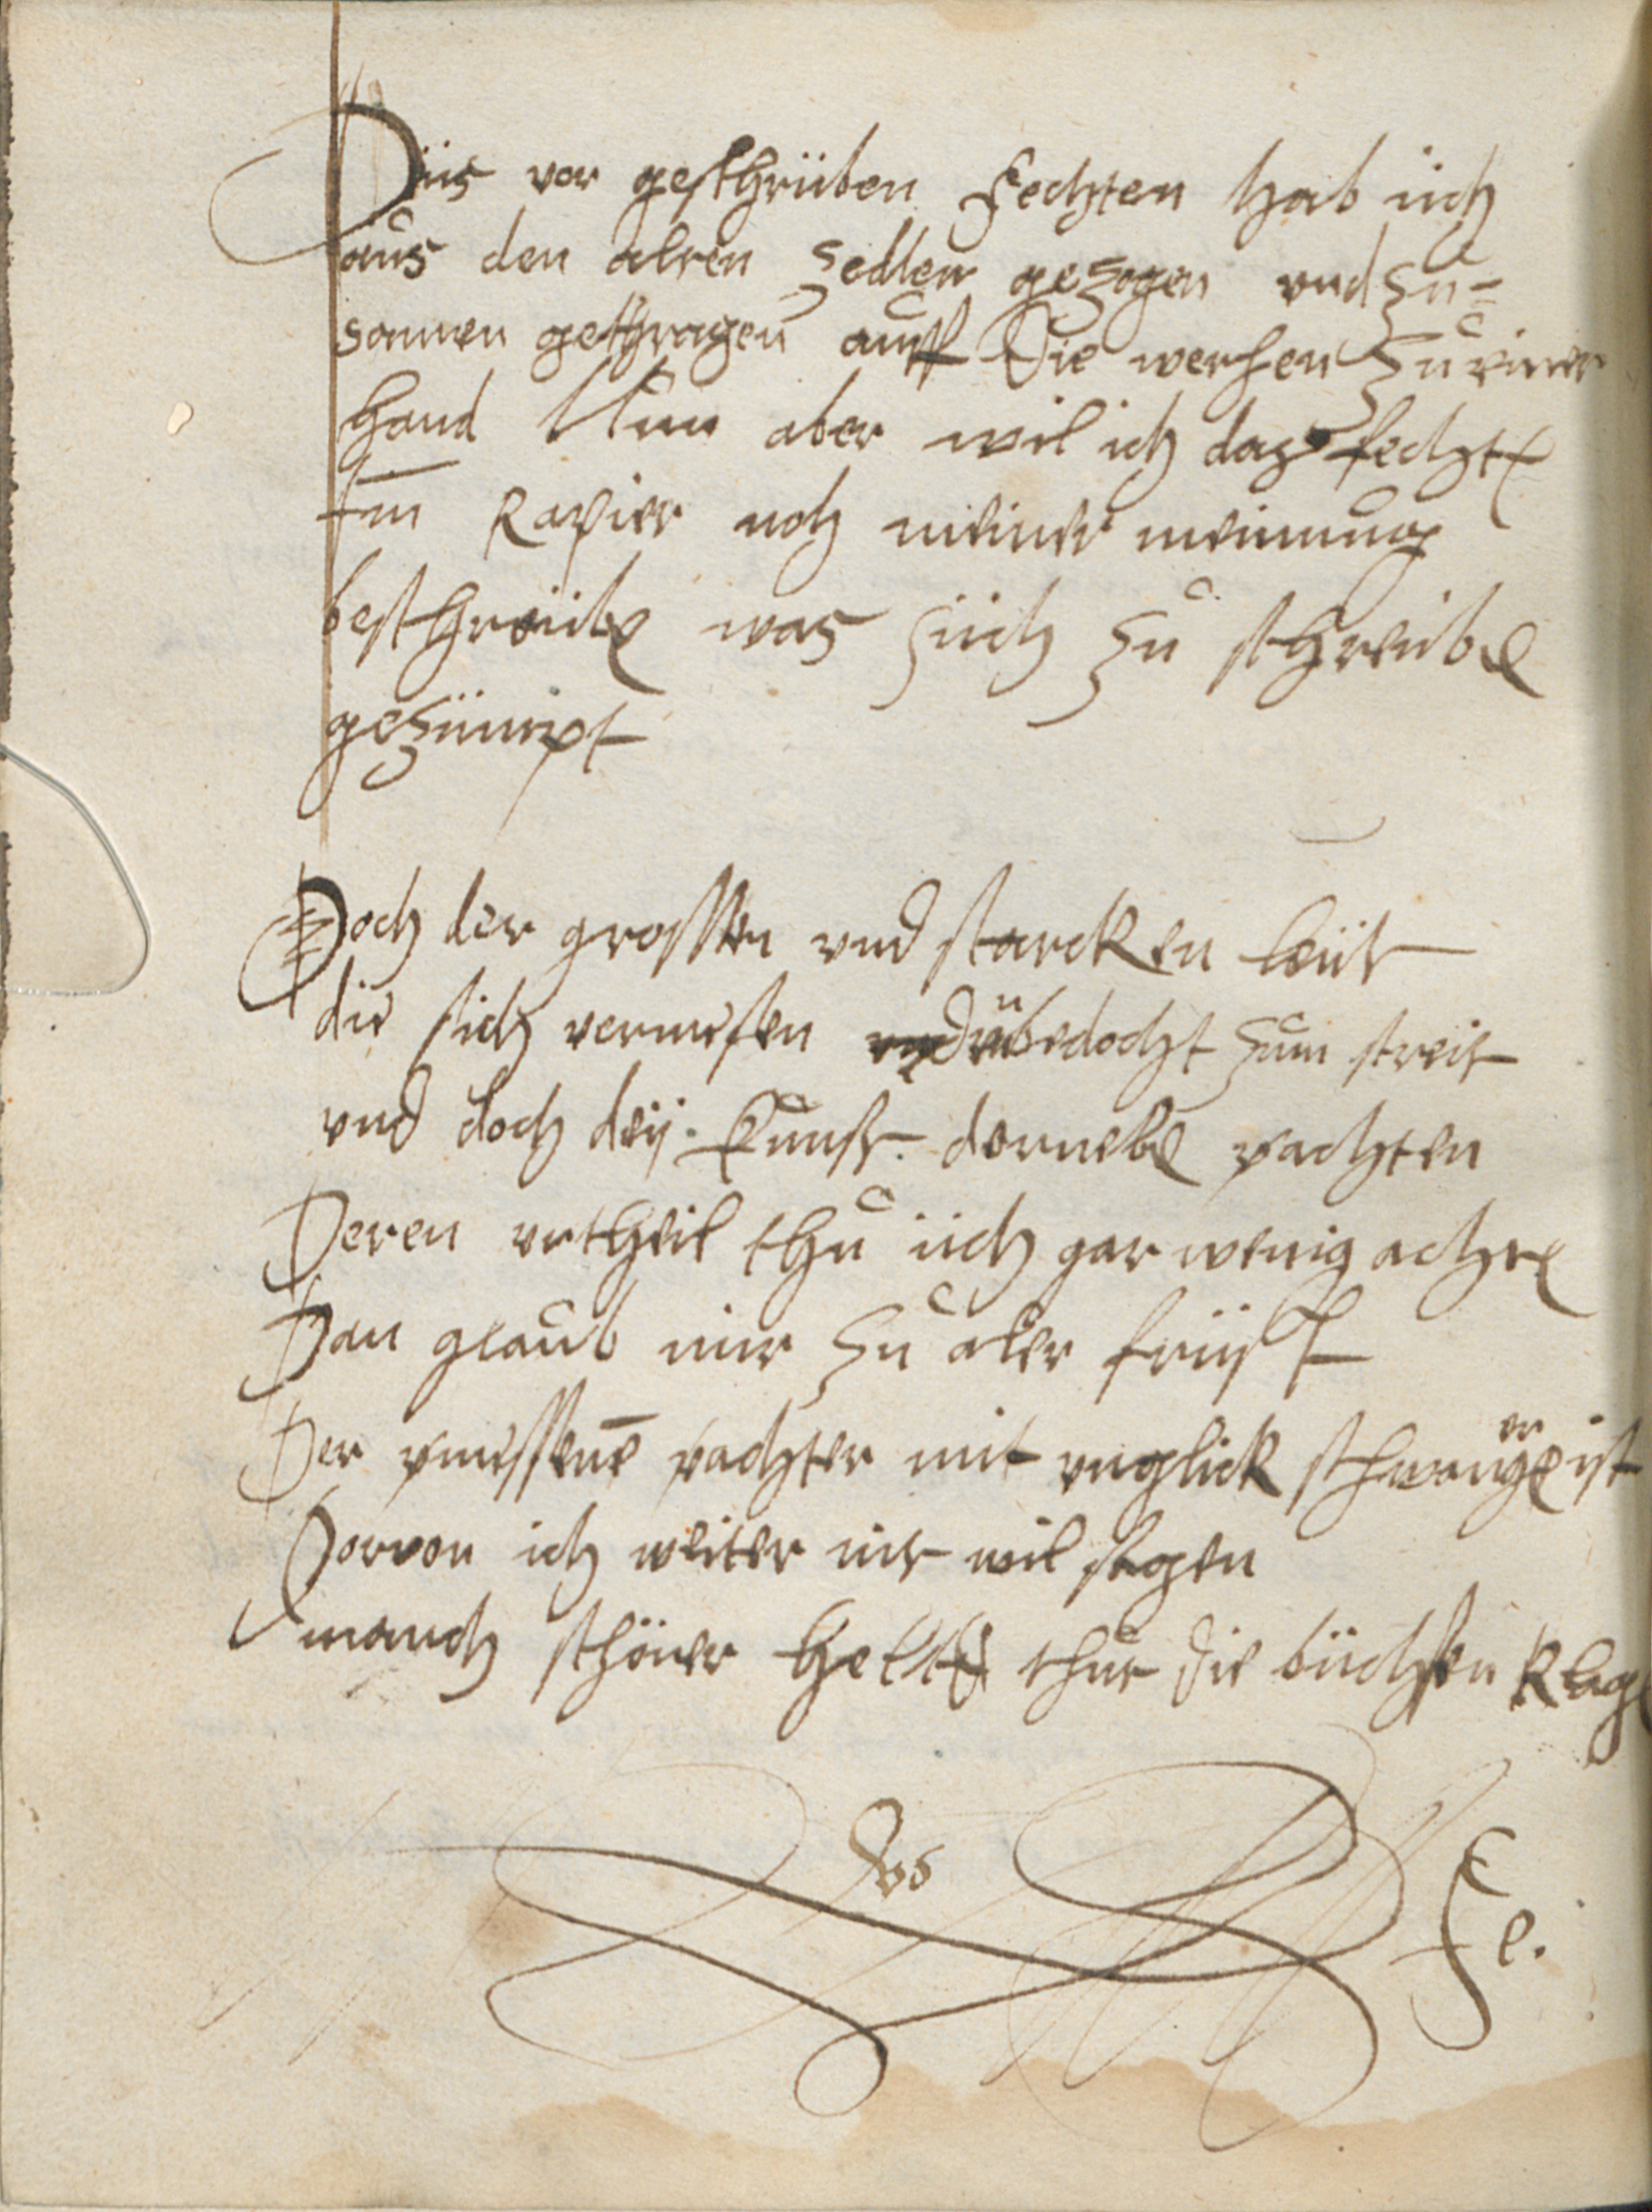 Diis vor geschriiben Fechten hab iich
aus den alten Zedlen gezogen und zu-
samen gethragen auff Die werhen zu einer
hand Nun aber wil ich daz fechte
Im Rapier noch meiner meinung
beschreiibe was siich zu schreiibe
geziimpt
Doch der grossen und starcken leiit
die sich vermessen unbedocht zum streit
und doch deij kunst dornebe vachten
Deren urtheil thu iich gar wenig achte
Dan glaub mir zu aler friist
Der vmessene vachter mit unglick schwanger ist
Dorvon ich weiter nit wil sagen
manch schöner helt thut die biichsen klage
Das
Fe.